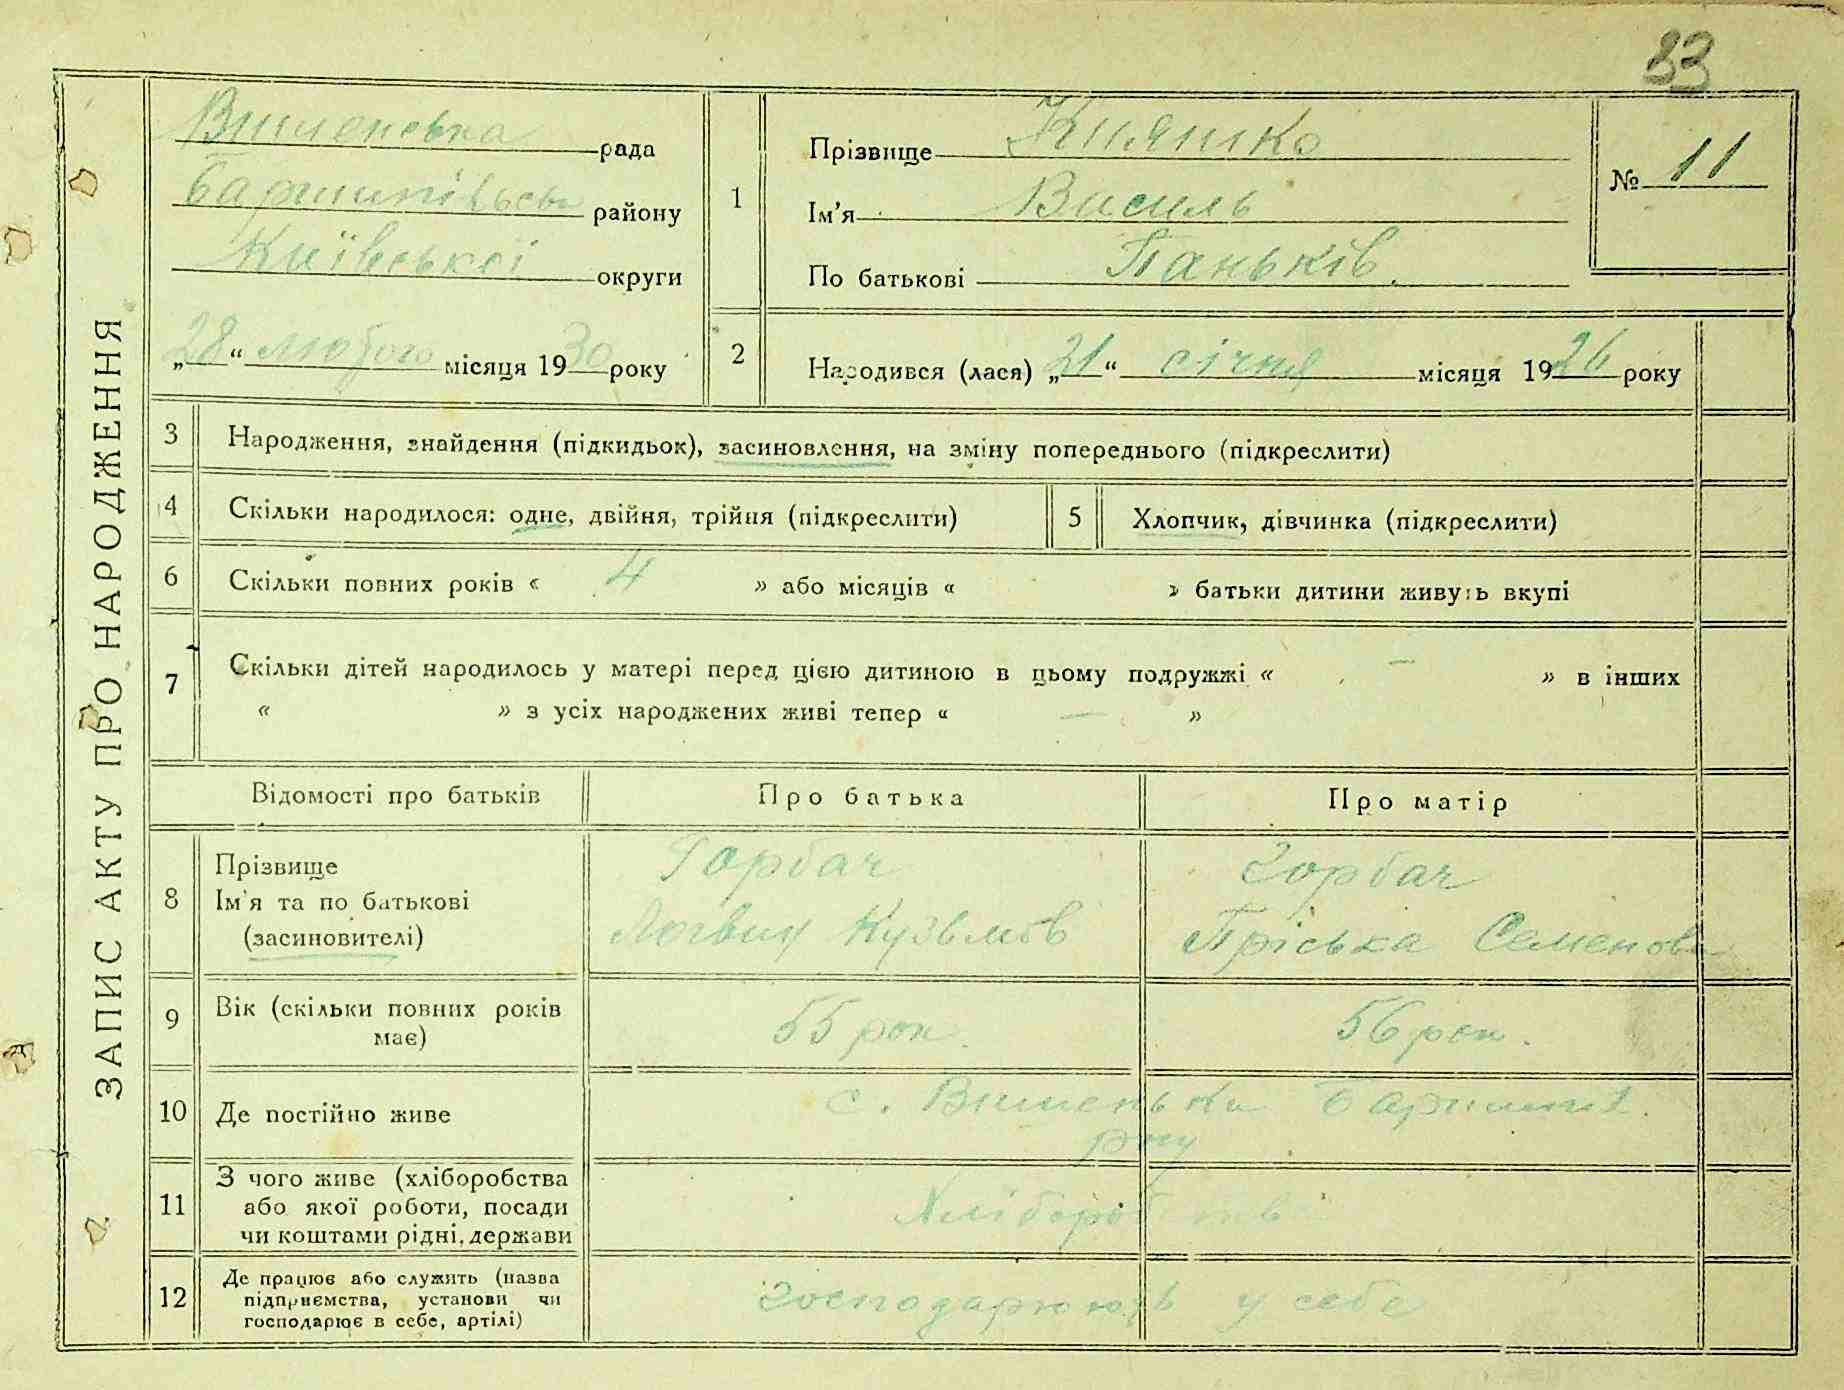 33
ЗАПИС АКТУ ПРО НАРОДЖЕННЯ
Вишенська рада
району
Київської округи
„28“ лютого місяця 1930 року
1
Прізвище Кияшко
Ім'я Василь
По батькові Паньків
№ 11
2
Народився (лася) „21“ січня місяця 1926 року
3 Народження, знайдення (підкидьок), засиновлення, на зміну попереднього (підкреслити)
4 Скільки народилося: одне, двійня, трійня (підкреслити)
5 Хлопчик, дівчинка (підкреслити)
6 Скільки повних років « 4 » або місяців « » батьки дитини живуть вкупі
7 Скільки дітей народилось у матері перед цією дитиною в цьому подружжі « — » в інших
« » з усіх народжених живі тепер « — »
Відомості про батьків Про батька Про матір
8 Прізвище
Ім'я та по батькові
(засиновителі)
Горбач
Логвин Кузьмов
Горбач
Пріська Семенова
9 Вік (скільки повних років
має)
55 рок. 56 рок.
10 Де постійно живе
с. Вишеньки
р-ну
11 З чого живе (хліборобства
або якої роботи, посади
чи коштами рідні, держави
12 Де працює або служить (назва
підприємства, установи чи
господарює в себе, артілі)
господарюють у себе